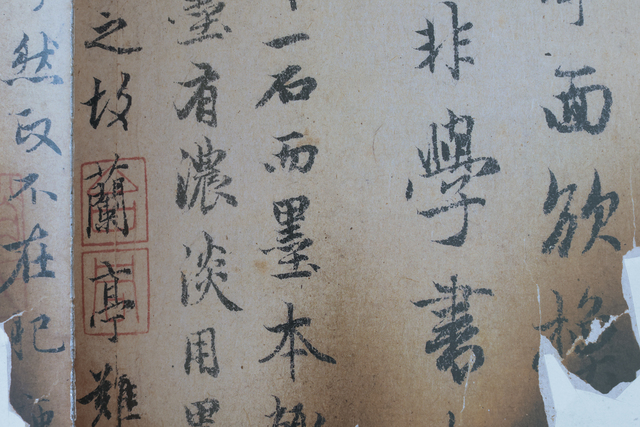 面欲
非學書
一石而墨本
墨有濃淡用墨
之故蘭亭難
然改不在肥